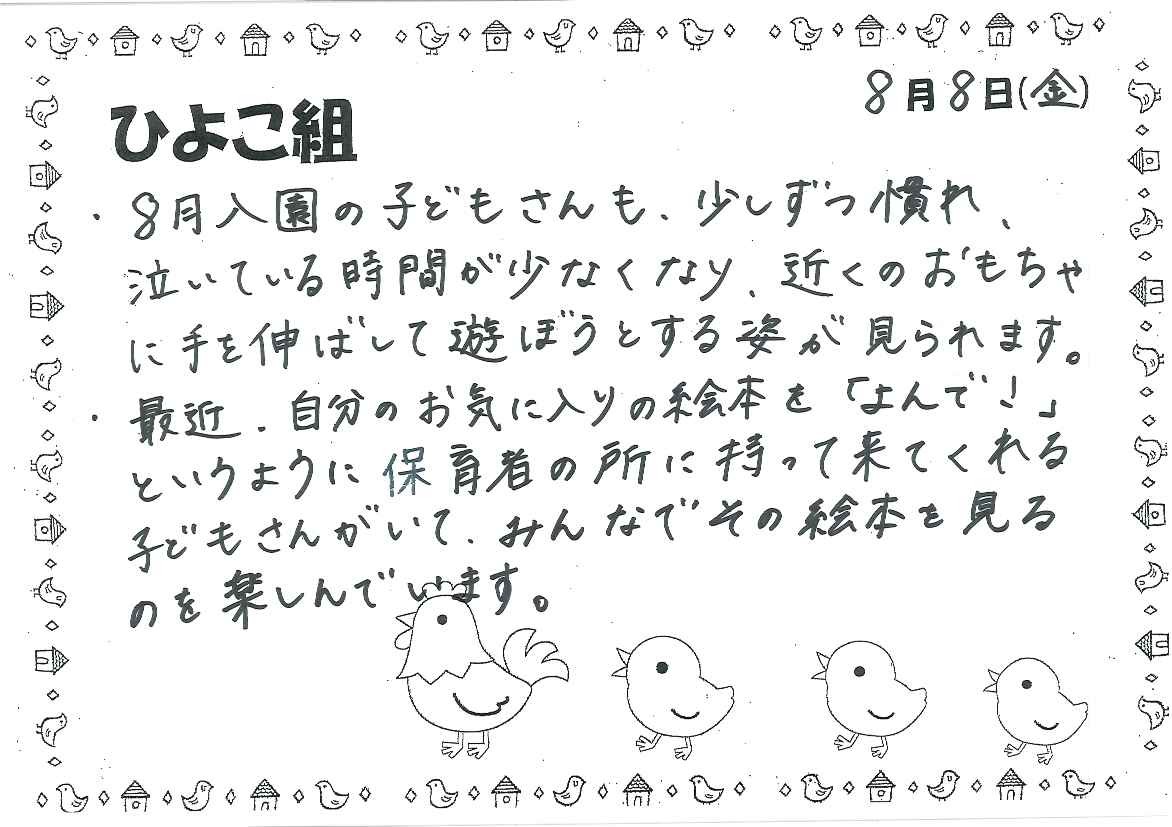 8月8日(金)
ひよこ組
・8月入園の子どもさんも、少しずつ慣れ、
泣いている時間が少なくなり、近くのおもちゃ
に手を伸ばして遊ぼうとする姿が見られます。
・最近、自分のお気に入りの絵本を「よんで!」
というように保育者の所に持って来てくれる
子どもさんがいて、みんなでその絵本を見る
のを楽しんでいます。